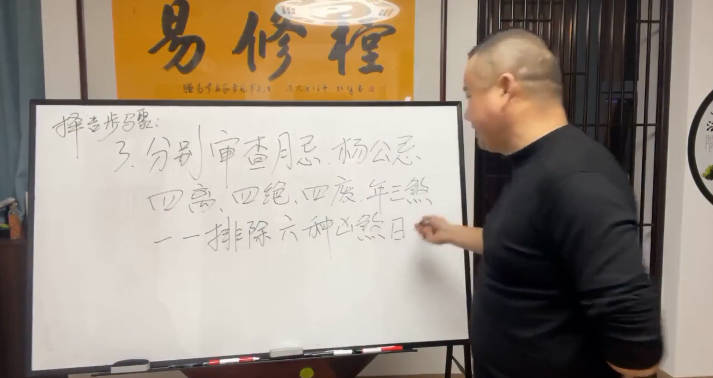 易修
择吉步骤:
3.分别审查月忌.杨公忌
四离、四绝、四废.年三煞
一一排除六种凶煞日